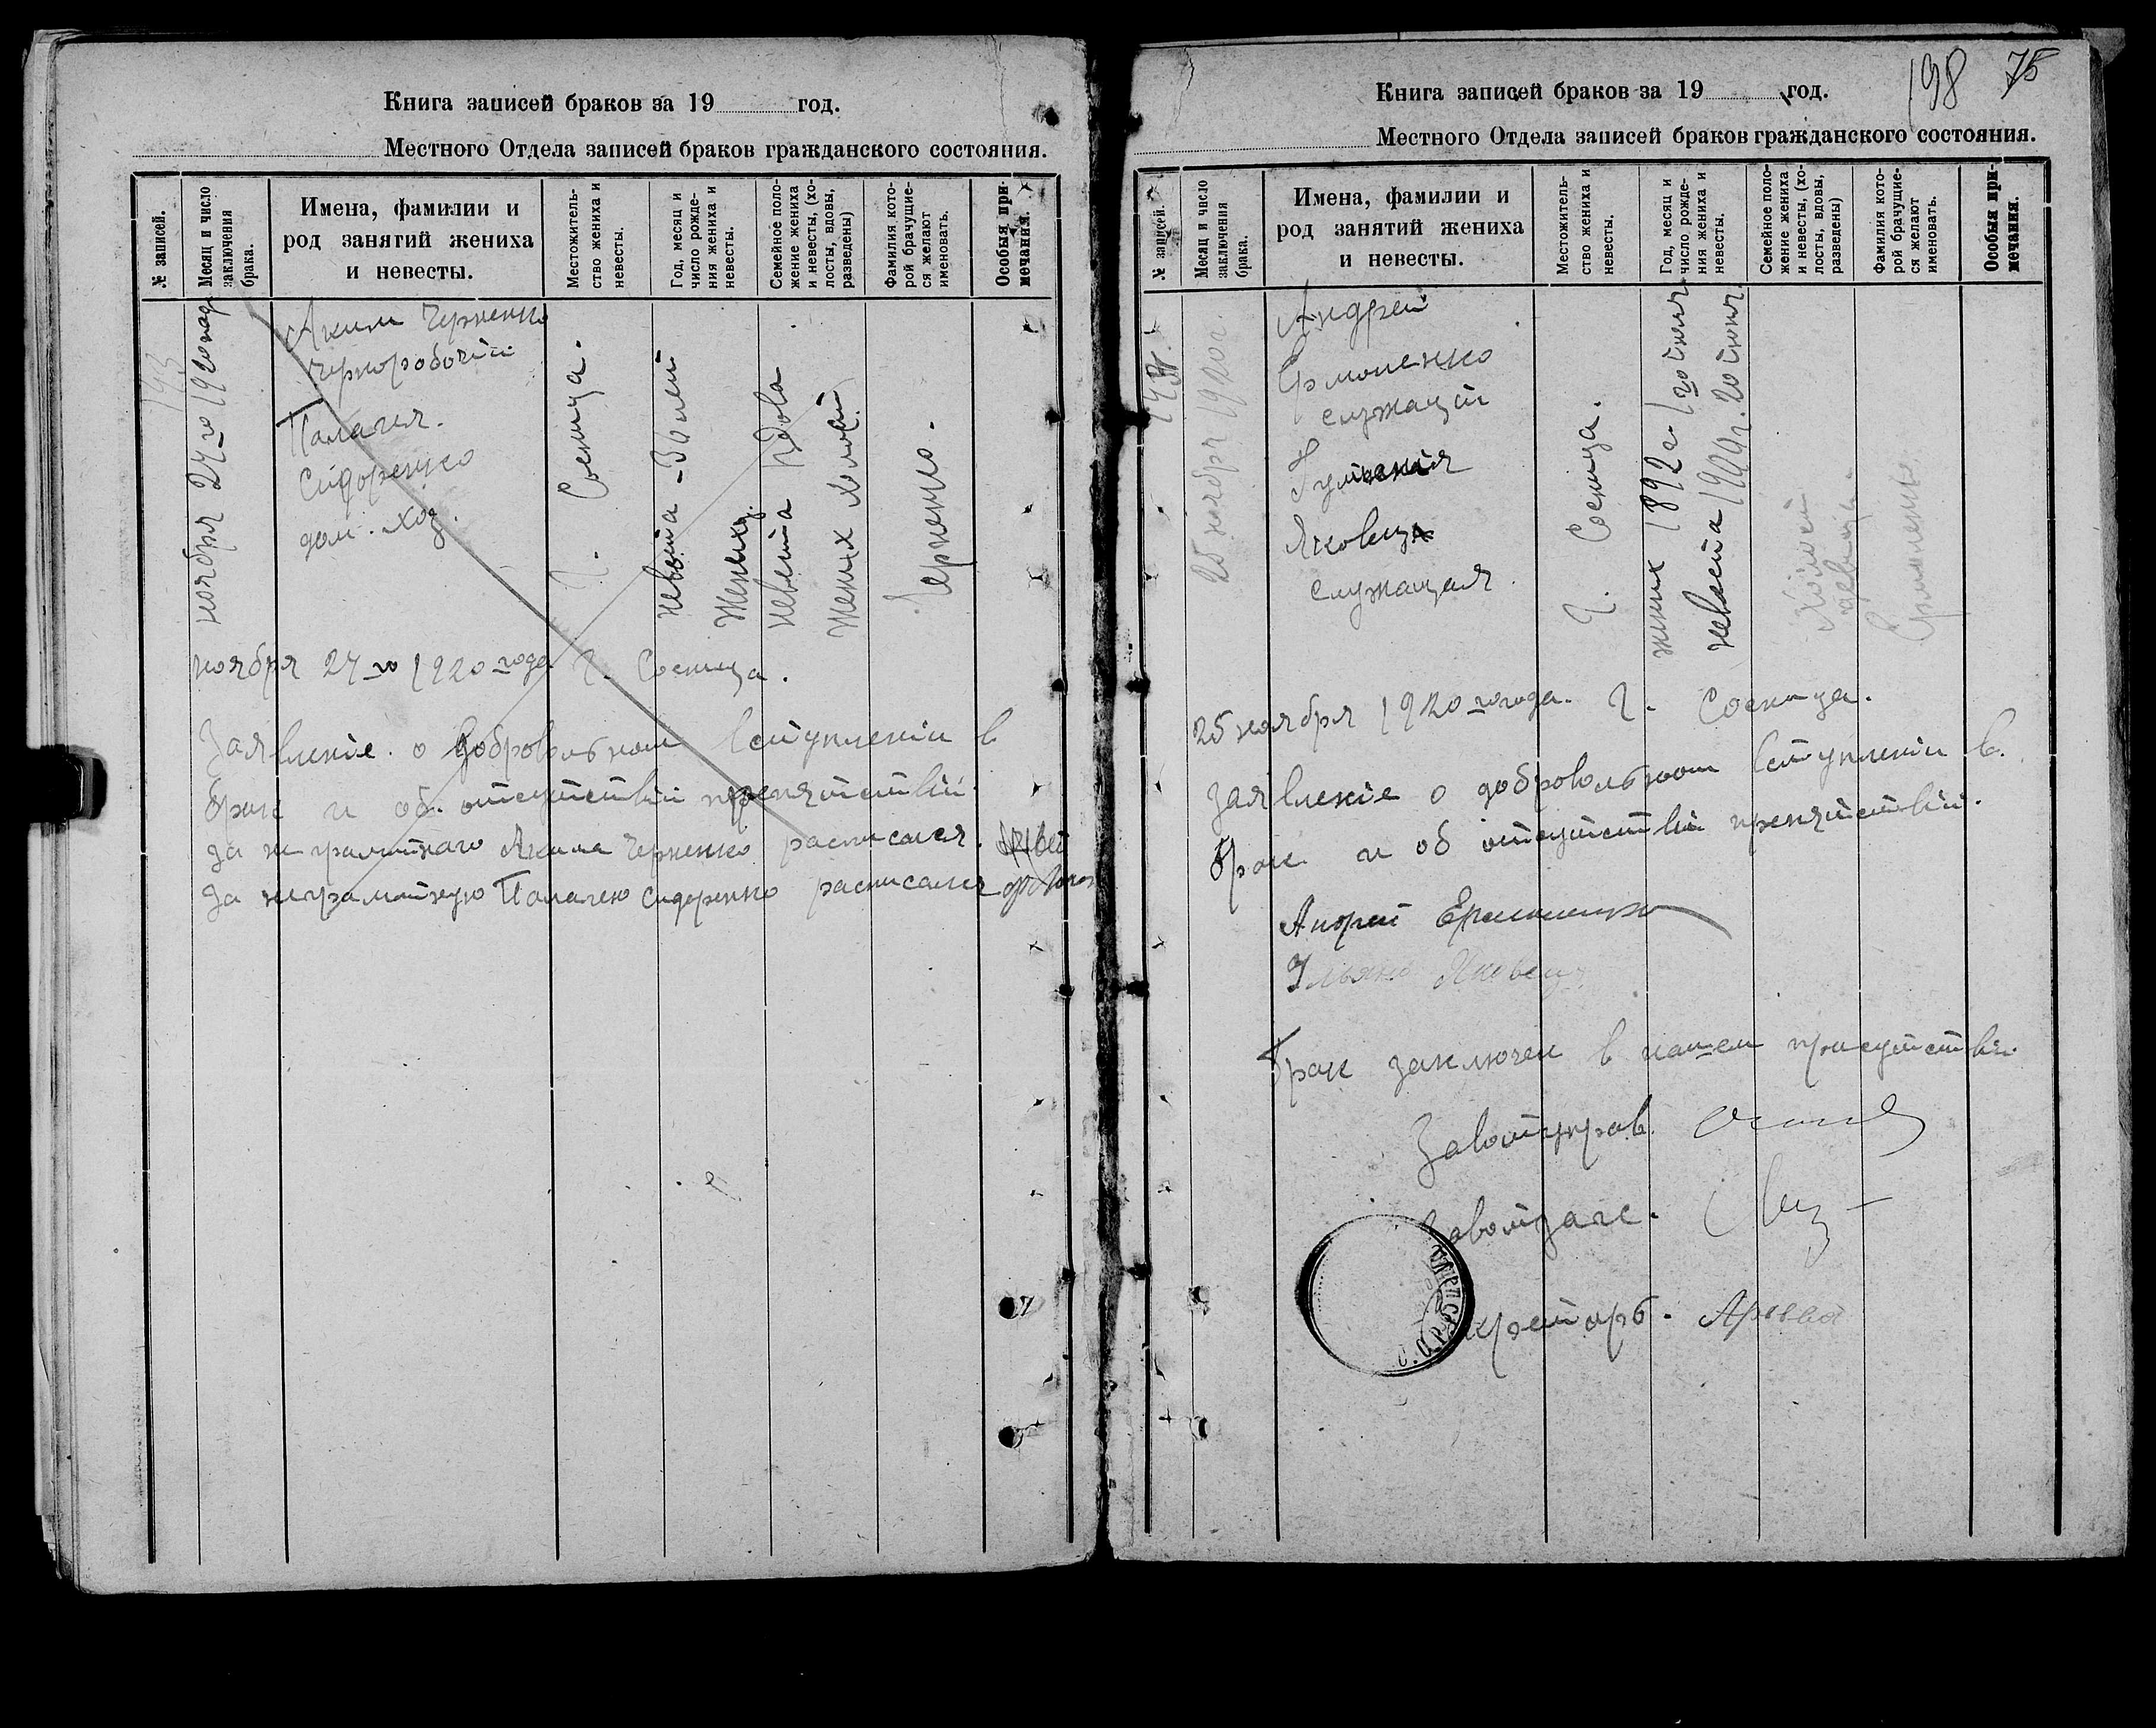 Книга записей браков за 19 год.
Местного Отдела записей браков гражданского состояния.
№ записей.
Месяц и число заключения брака.
Имена, фамилии и род занятий жениха и невесты.
Местожитель-
ство жениха и
невесты.
Год, месяц и
число рожде-
ния жениха и
невесты.
Семейное поло-
жение жениха
и невесты, (хо-
лосты, вдовы,
разведены)
Фамилия кото-
рой брачущие-
ся желают
именовать.
Особыя при-
мечания.
ноября 24го 1920 год
Аким Черненко
чернорабочий
Палагея
Сидоренко
дом. хоз.
г. Сосница.
невеста - 30 лет
невеста вдова
жених холост
Черненко.
ноября 24го 1920го года г. Сосница.
Заявление о добровольном вступлении в
брак и об отсутствии препятствий.
За неграмотнаго Акима Черненко расписался
За неграмотную Палагею Сидоренко расписался
198 75
Книга записей браков за 19 год.
Местного Отдела записей браков гражданского состояния.
№ записей.
Месяц и число
заключения
брака.
Имена, фамилии и
род занятий жениха
и невесты.
Местожитель-
ство жениха и
невесты.
Год, месяц и
число рожде-
ния жениха и
невесты.
Семейное поло-
жение жениха
и невесты, (хо-
лосты, вдовы,
разведены)
Фамилия кото-
рой брачущие-
ся желают
именовать.
Особыя при-
мечания.
25 ноября 1920 г.
Андрей
Ермоленко
служащий
Яковец
служащая
г. Сосница.
жених 1892 г.
невеста 1900 г. 20 июня
Холост
девица
Ермоленко
25 ноября 1920го года. г. Сосница.
Заявление о добровольном вступлении в
брак и об отсутствии препятствий.
Андрей Ермоленко
Ульяна Яковец
Брак заключен в нашем присутствии
Завотуправ.
Завотзагс.
Секретарь.